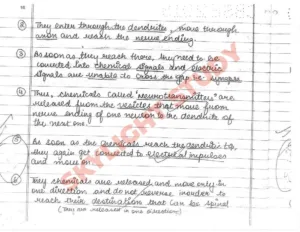 ② They enter through the dendrites, move through
axon and reach the nerve ending.
③ As soon as they reach there, they need to be
converted into chemical signals and electric
signals are unable to cross the gap be- synapse
④ Thus, chemicals called "neurotransmitters" are
released from the vesicles that move from
nerve ending of one neuron to the dendrite of
the next one.
⑤ As soon as the chemicals reach the dendrite,
they again get converted to electrical impulses
and move on
They chemicals are released and move only in
one direction and do not reverse inorder to
reach their destination that can be spinal
(They are released in one direction)
SKYLIGHT STUDY